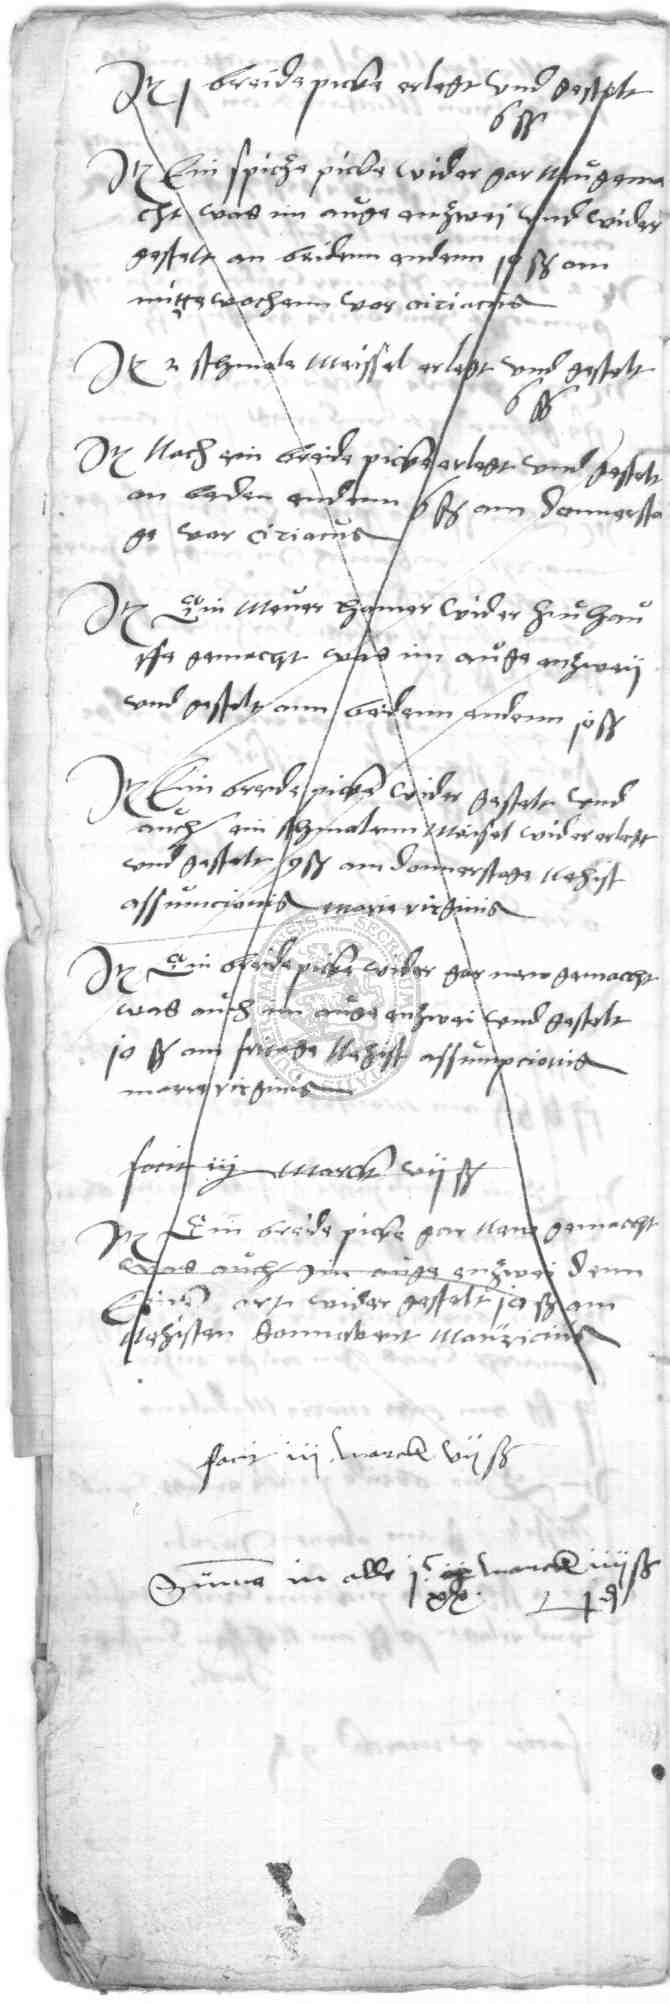 It j breidepicke erlegt und gestelt
6 ß
It Ein spicze picke wider gar Neugema
cht was im auge enzwei und wider
gestelt an beidenn endenn 10 ß am
mittewochenn vor ciriacus
It 2 schmale Meissel erlegt und gestelt
6 ß
It Noch ein breide picke erlegt und gestelt
an beden endenn 6 ß am donnersta
ge vor Ciriacus
It Ein Meuer hamer wider zcu hau
ffe gemacht was im auge enzweij
und gestelt ann beidenn endenn 10 ß
It Ein breede picke wider gestelt und
auch ein schmalenn Meisel wider erlegt
und gestelt 9 ß am donnerstage Nehist
assumcionis marie virginis
It Ein breide picke wider gar new gemacht
was auch im auge enzwei und gestelt
10 ß am fritage Nehist assumpcionis
marie virginis
facit iij Marck vij ß
It Ein breide picke gar New gemacht
was auch im auge enzwei denn
einen ort wider gestelt 10 ß am
Nehisten Sonnabent Mauricius
facit iij marck vij ß
Summa in alle marck iiij ß
xx